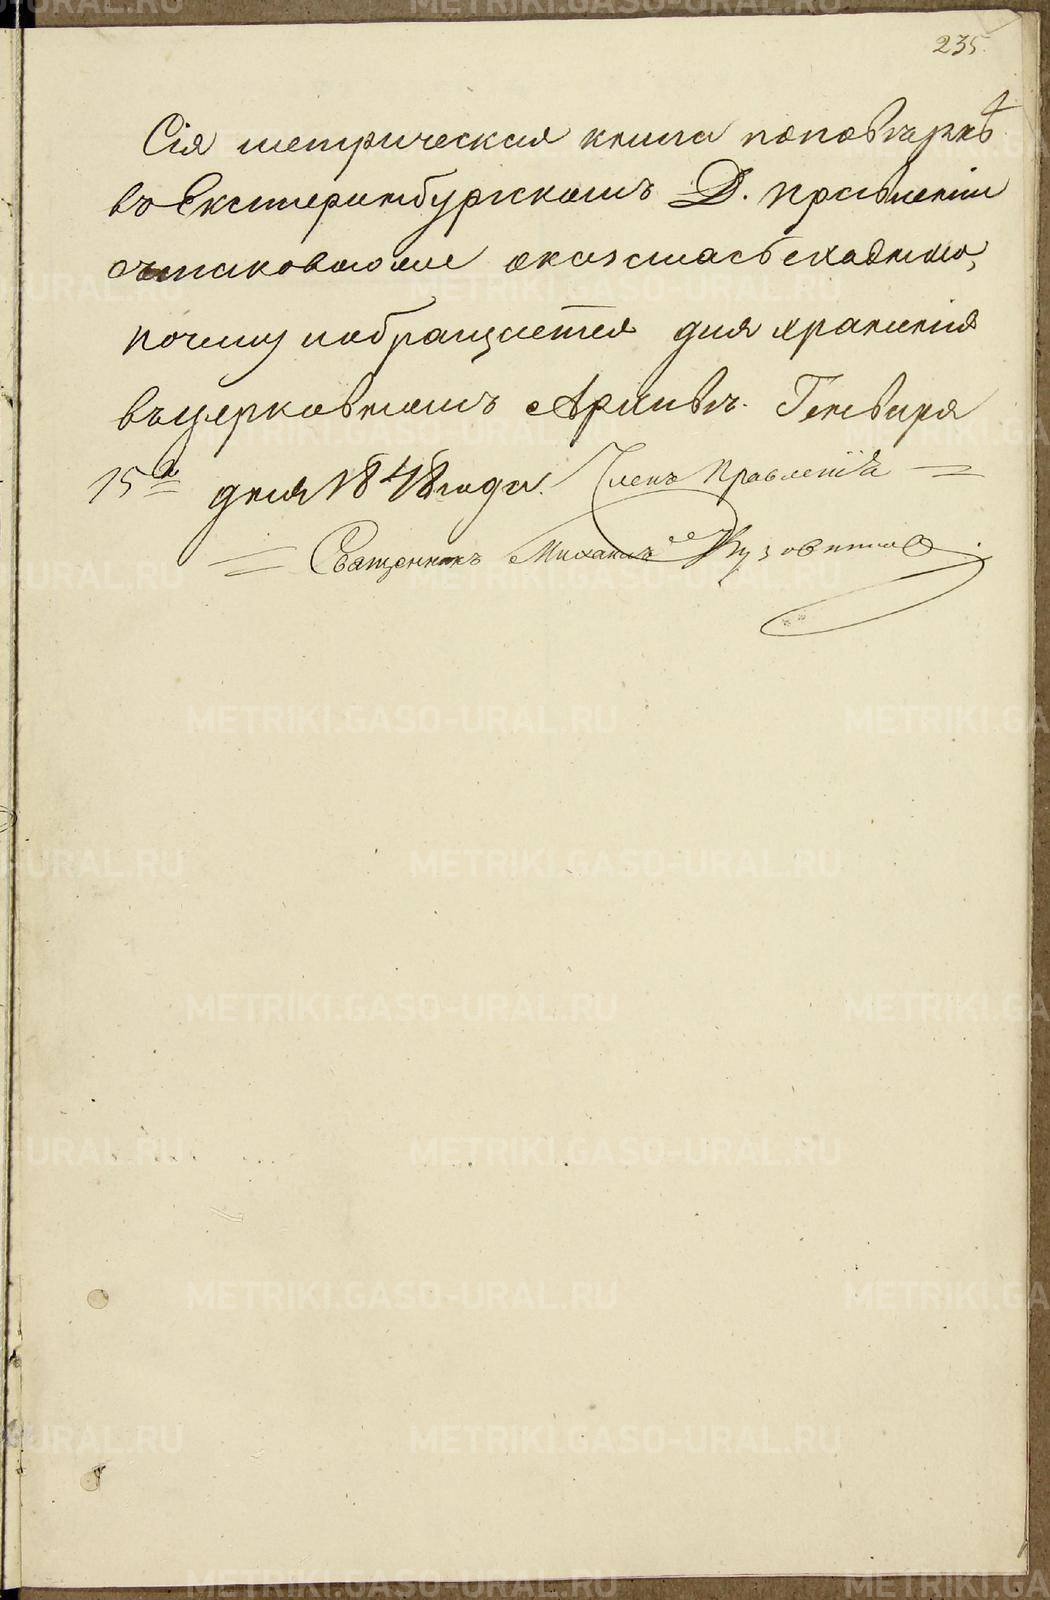 235.
Сія метрическая книга по повѣркѣ
въ Екатеринбургскомъ Д. Правленіи
съ таковою же оказалась сходною,
почему и обращается для храненія
въ церковномъ Архивѣ. Генваря
15го дня 1848 года. Членъ Правленія
Священникъ Михаилъ
METRIKI.GASO-URAL.RU